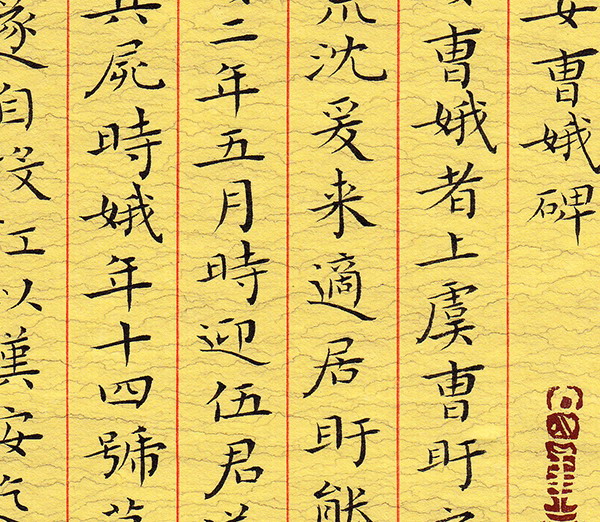 女曹娥碑
曹娥者上虞曹盱
沈爰来適居盱能
二年五月時迎伍君
屍時娥年十四號
遂自投江以漢安